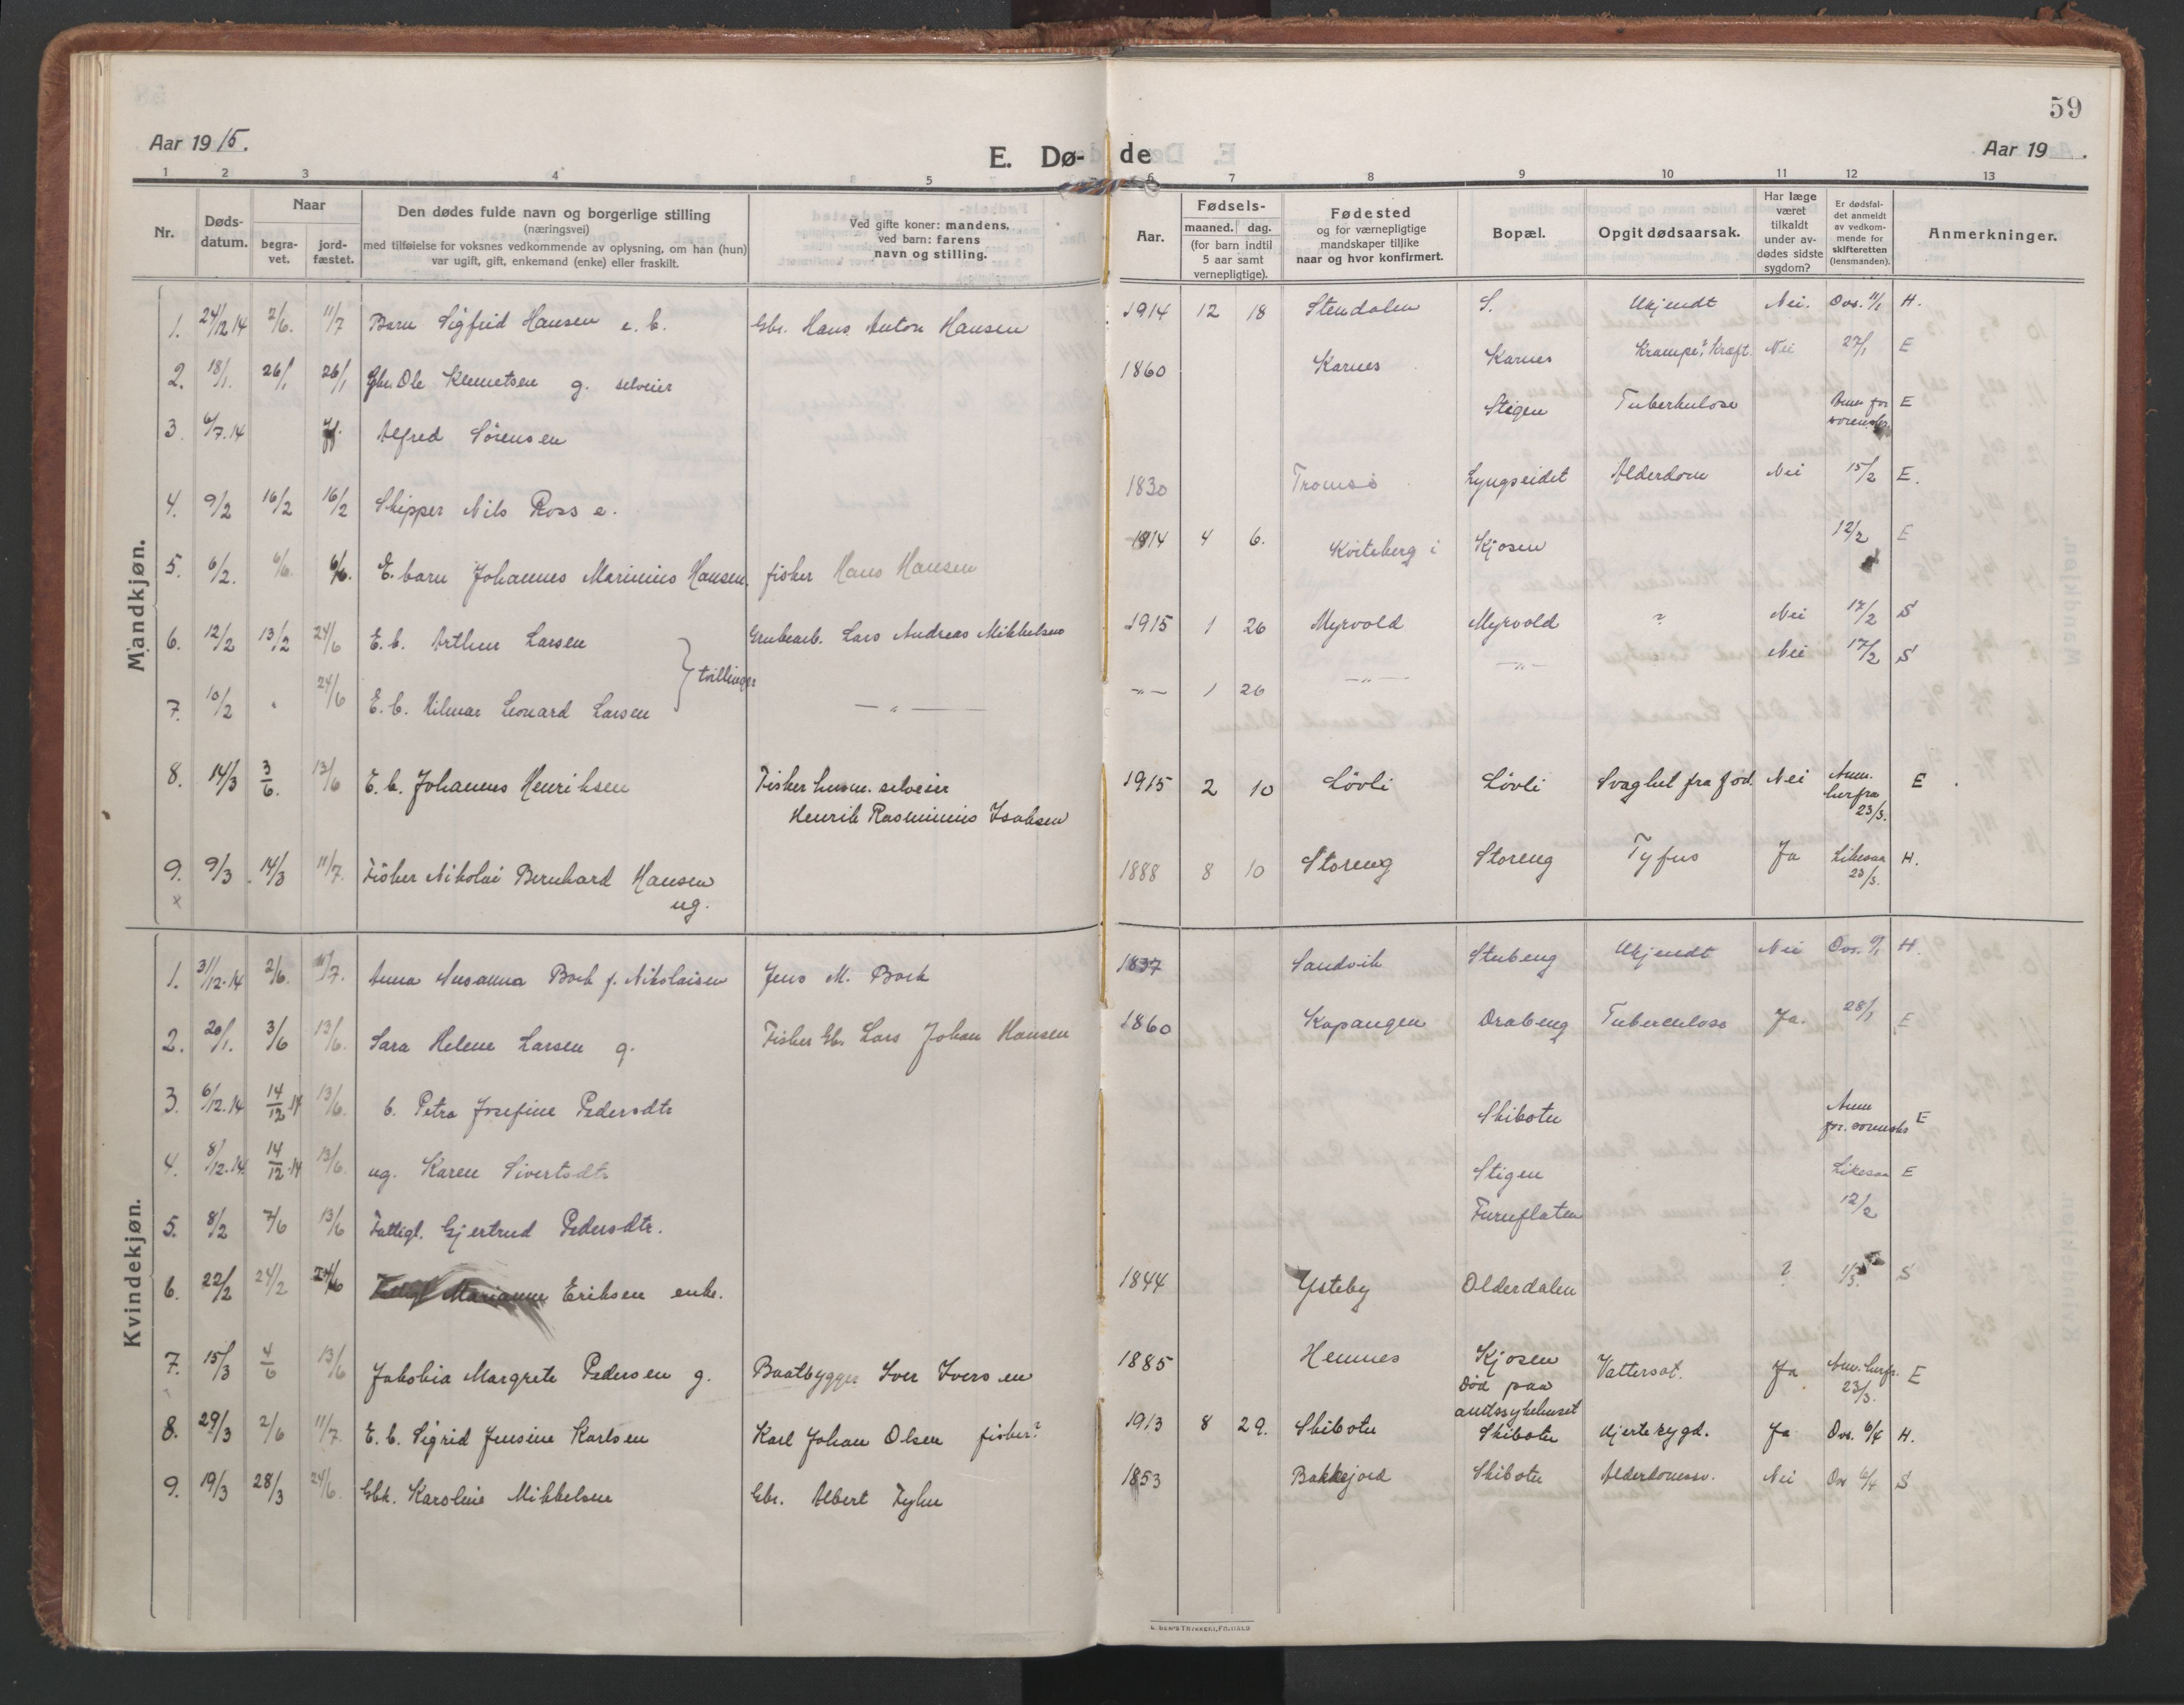 59
Aar 1915.
E. Dø-de
Aar 19 .
1 2 3 4 5 6 7 8 9 10 11 12 13
Nr.
Døds-datum.
Naar
begra-vet.
jord-fæstet.
Den dødes fulde navn og borgerlige stilling
(næringsvei)
med tilføielse for voksnes vedkommende av oplysning, om han (hun)
var ugift, gift, enkemand (enke) eller fraskilt.
Ved gifte koner: mandens,
ved barn: farens
navn og stilling.
Aar.
Fødsels-
maaned. dag.
(for barn indtil
5 aar samt
vernepligtige).
Fødested
og for værnepligtige
mandskaper tillike
naar og hvor konfirmert.
Bopæl.
Opgit dødsaarsak.
Har læge
været
tilkaldt
under av-
dødes sidste
sygdom?
Er dødsfal-
det anmeldt
av vedkom-
mende for
skifteretten
(lensmanden).
Anmerkninger.
Mandkjøn.
1. 24/12 14 2/6. 11/7 Barn Sigfrid Hansen e. b. Gbr. Hans Anton Hansen 1914 12 18 Stendalen S. Ukjendt Nei. Ovs. 11/1 H.
2. 18/1. 26/1 26/1 Gbr. Ole Klemetsen g. selveier 1860 Karnes Karnes Krampe? Kræft. Nei 27/1 E
3. 6/7.14 Alfred Sörensen Stigen Tuberkulose Anm for E
4. 9/2 16/2 16/2 Skipper Nils Ross e. 1830 Tromsö Lyngseidet Alderdom Nei 15/2 E.
5. 6/2. 6/6. 6/6. E. barn Johannes Marinius Hansen. fisker Hans Hansen 1914 4 6. Kviteberg i Kjosen 12/2 E
6. 12/2 13/2 24/6 E. b. Arthur Larsen Grubearb. Lars Andreas Mikkelsen 1915 1 26 Myrvold Myrvold ? Nei 17/2 S
tvillinger
7. 10/2 " 24/6 E. b. Hilmar Leonard Larsen — " — -"- 1 26 -"- -"- Nei 17/2 S
8. 14/3 3/6. 13/6 E. b. Johannes Henriksen Fisker husm. selveier 1915 2 10 Lövli Lövli Svaghet fra föd. Nei Anm. E
Henrik Rasminius Isaksen herfra 23/3.
9. 9/3 14/3 11/7. Fisker Nikolai Bernhard Hansen 1888 8 10 Storeng Storeng Tyfus Ja Likesaa H.
x ug. 23/3.
Kvindekjøn.
1. 31/12.14 2/6. 11/7. Anna Susanna Bock f. Nikolaisen Jens M. Bock 1837 Sandvik Stubeng Ukjendt Nei Ovs. 9/1 H.
2. 20/1. 3/6 13/6. Sara Helene Larsen g. Fisker Gb. Lars Johan Hansen 1860 Kopangen Drabeng Tuberculose Ja. 28/1 E
3. 6/12.14 14/12.14 13/6. b. Petra Josefine Pedersdtr Skibotn Anm E
4. 8/12.14. 14/12.14 13/6. ug. Karen Sivertsdtr Stigen Likesaa E
5. 8/2 7/6 13/6 Fattigl. Gjertrud Pedersdtr. Furuflaten 12/2
6. 22/2 24/2 24/6 Fattigl Marianne Eriksen enke. 1844 Ysteby Olderdalen ? 1/3. S
7. 15/3 4/6 13/6 Jakobia Margrete Pedersen g. Baatbygger Iver Iversen 1885 Hemnes Kjosen Vattersot. Ja Anm. herfr. E
Död paa 23/3.
amtssykehuset
8. 29/3 2/6 11/7. E. b. Sigrid Jensine Karlsen Karl Johan Olsen fisker? 1913 8 29. Skibotn Skibotn Hjertesygd. Ja Ovs. 6/4 H.
9. 19/3 28/3 24/6. Gbk. Karoline Mikkelsen Gbr. Albert Fyhn 1853 Bakkejord Skibotn Alderdomssv. Nei Ovs 6/4 S